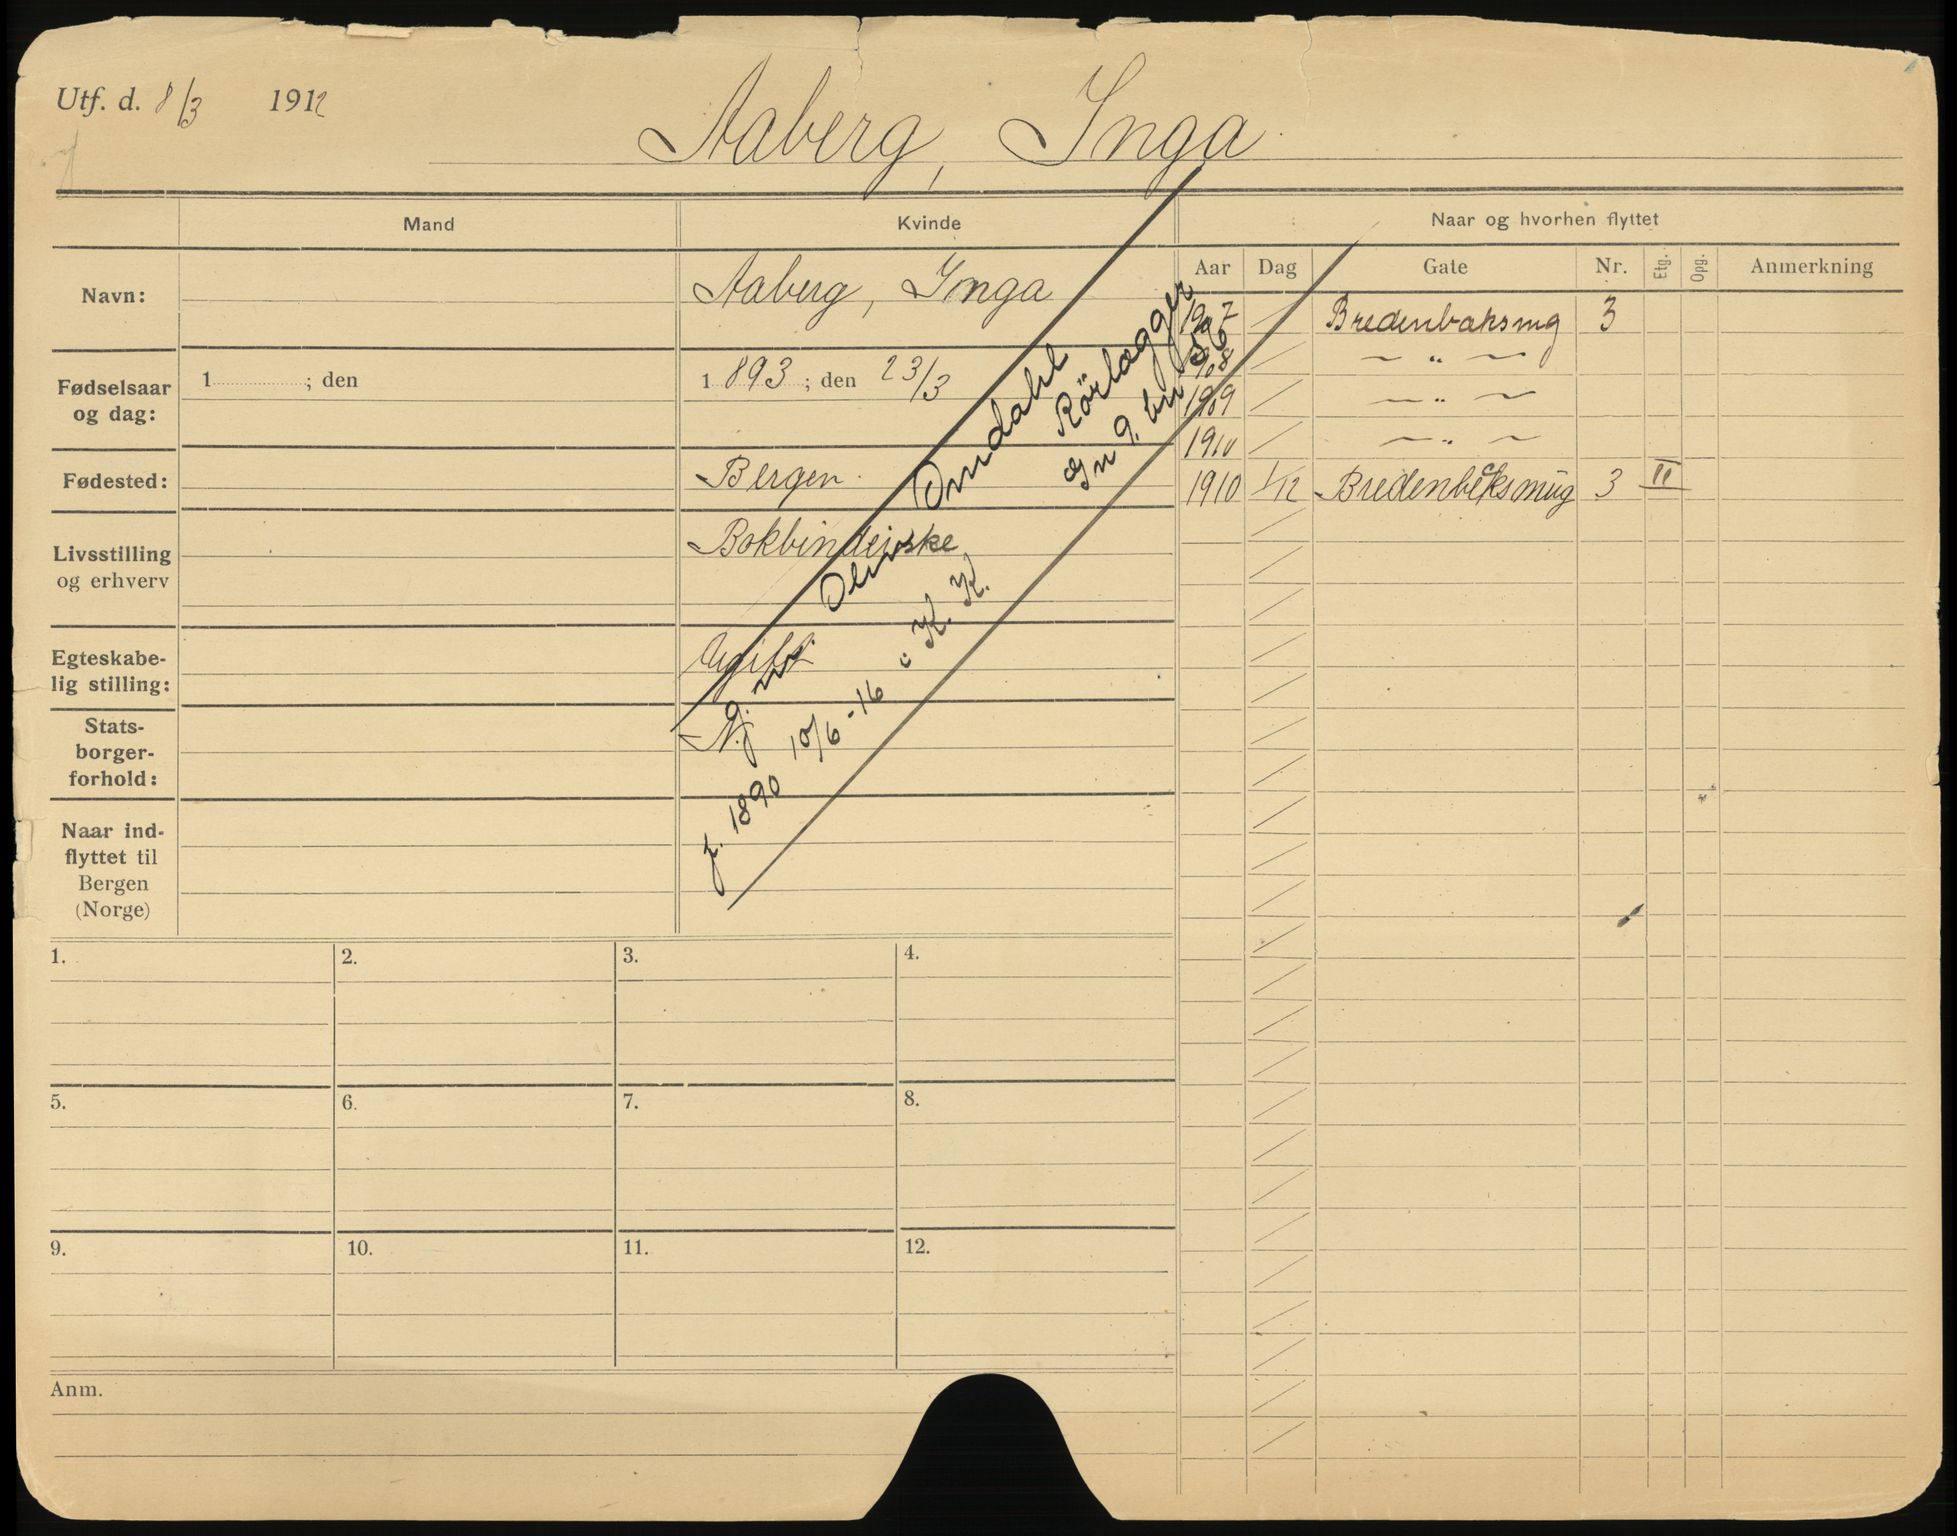 Utf. d. 8/3 1912
Aaberg, Inga
Mand
Kvinde
Naar og hvorhen flyttet
Aar Dag Gate Nr. Etg. Opg. Anmerkning
Navn:
Aaberg, Inga
Fødselsaar
og dag:
1 ; den
1 893 ; den 23/3
Fødested:
Bergen.
Livsstilling
og erhverv
Bokbinderske
Egteskabe-
lig stilling:
Ugift
Stats-
borger-
forhold:
N.
Naar ind-
flyttet til
Bergen
(Norge)
g. m. Omdahl
Rörlægger
f. 1890 10/6-16 i K. K.
1907 Bredenbaksmg 3
1908 — " —
1909 — " —
1910 — " —
1910 1/12 Bredenbeksmug 3 II
1.
2.
3.
4.
5.
6.
7.
8.
9.
10.
11.
12.
Anm.